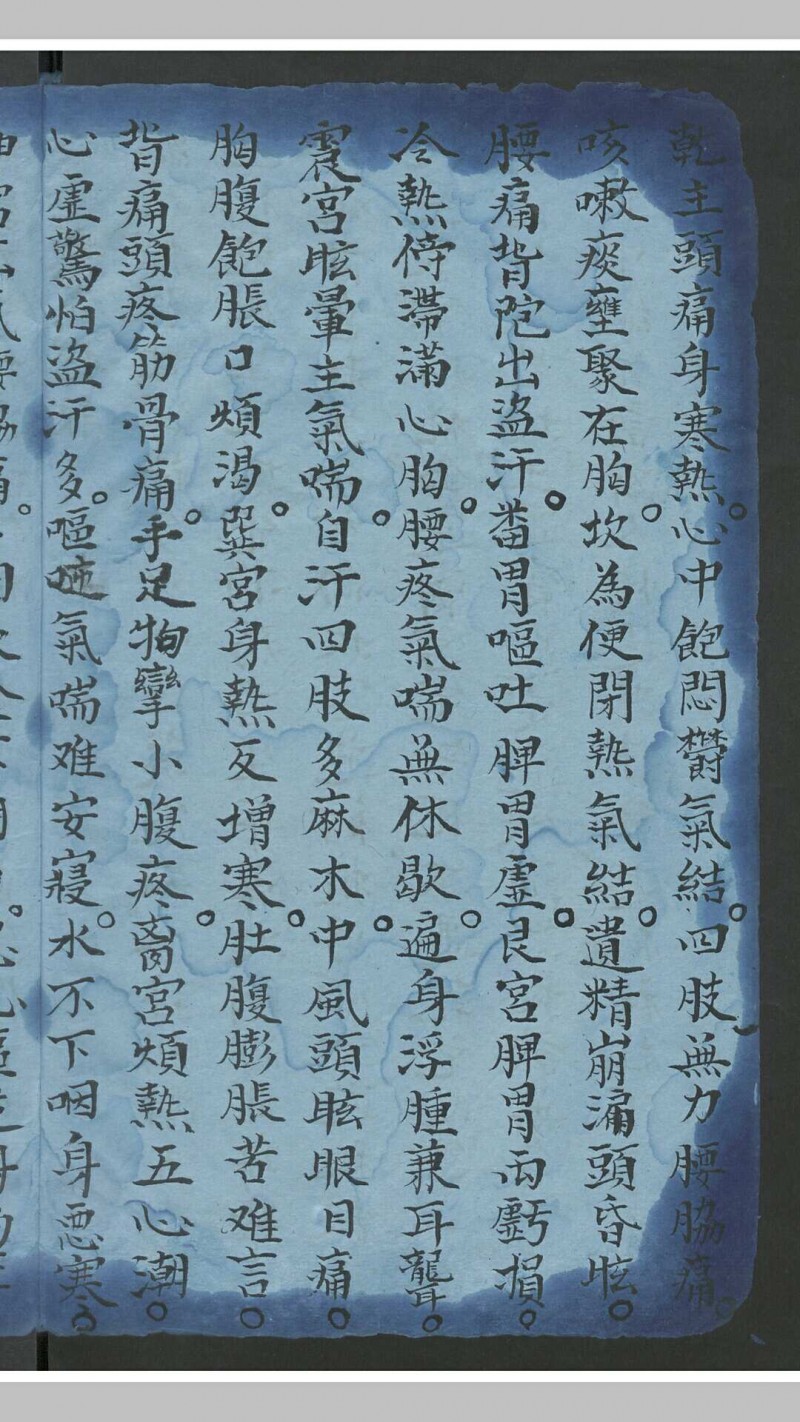 乾主頭痛身寒熱。心中飽悶欝氣結。四肢無力腰脇痛。
咳嗽痰壅聚在胸。坎為便閉熱氣結。遺精崩漏頭昏眩。
腰痛背陀出盜汗。畨胃嘔吐脾胃虛。艮宮脾胃両虧損。
冷熱停滯滿心胸。腰疼氣喘無休歇。遍身浮腫兼耳聾。
震宮眩暈主氣喘。自汗四肢多麻木。中風頭眩眼目痛。
胸腹飽脹口煩渴。巽宮身熱反增寒。肚腹膨脹苦难言。
背痛頭疼筋骨痛。手足拘攣小腹疼。离宮煩熱五心潮。
心虛驚怕盜汗多。嘔吐氣喘难安寢。水不下咽身惡寒。